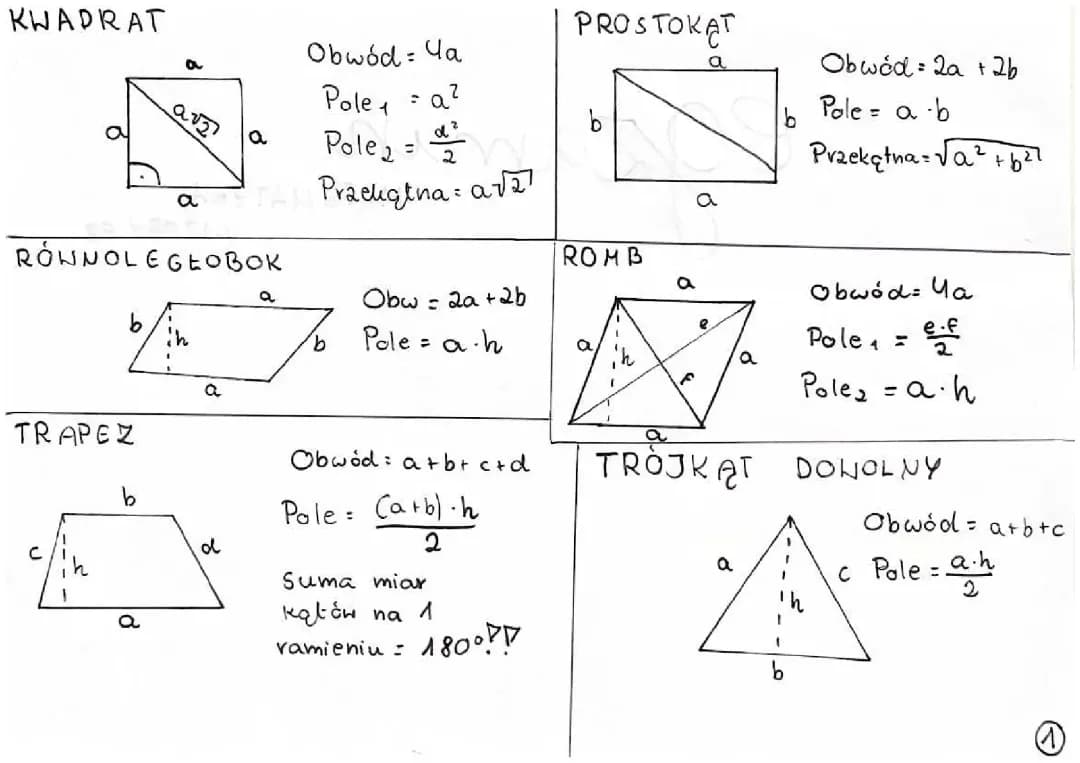 KWADRAT
a
a
a√2
a
a
Obwód = 4a
Pole₁ = a²
Pole₂ = d²/2
Przekątna = a√2
PROSTOKĄT
a
b
b
a
Obwód = 2a + 2b
Pole = a · b
Przekętna = √a² + b²
RÓWNOLEGŁOBOK
a
b
h
b
a
Obw = 2a + 2b
Pole = a · h
ROMB
a
e
a
h
a
f
a
Obwód = 4a
Pole₁ = e·f/2
Pole₂ = a · h
TRAPEZ
b
c
h
d
a
Obwód = a + b + c + d
Pole = (a+b) · h
2
Suma miar
kątów na 1
ramieniu = 180°!!
TRÓJKĄT DOWOLNY
a
c
h
b
Obwód = a + b + c
Pole = a·h/2
1